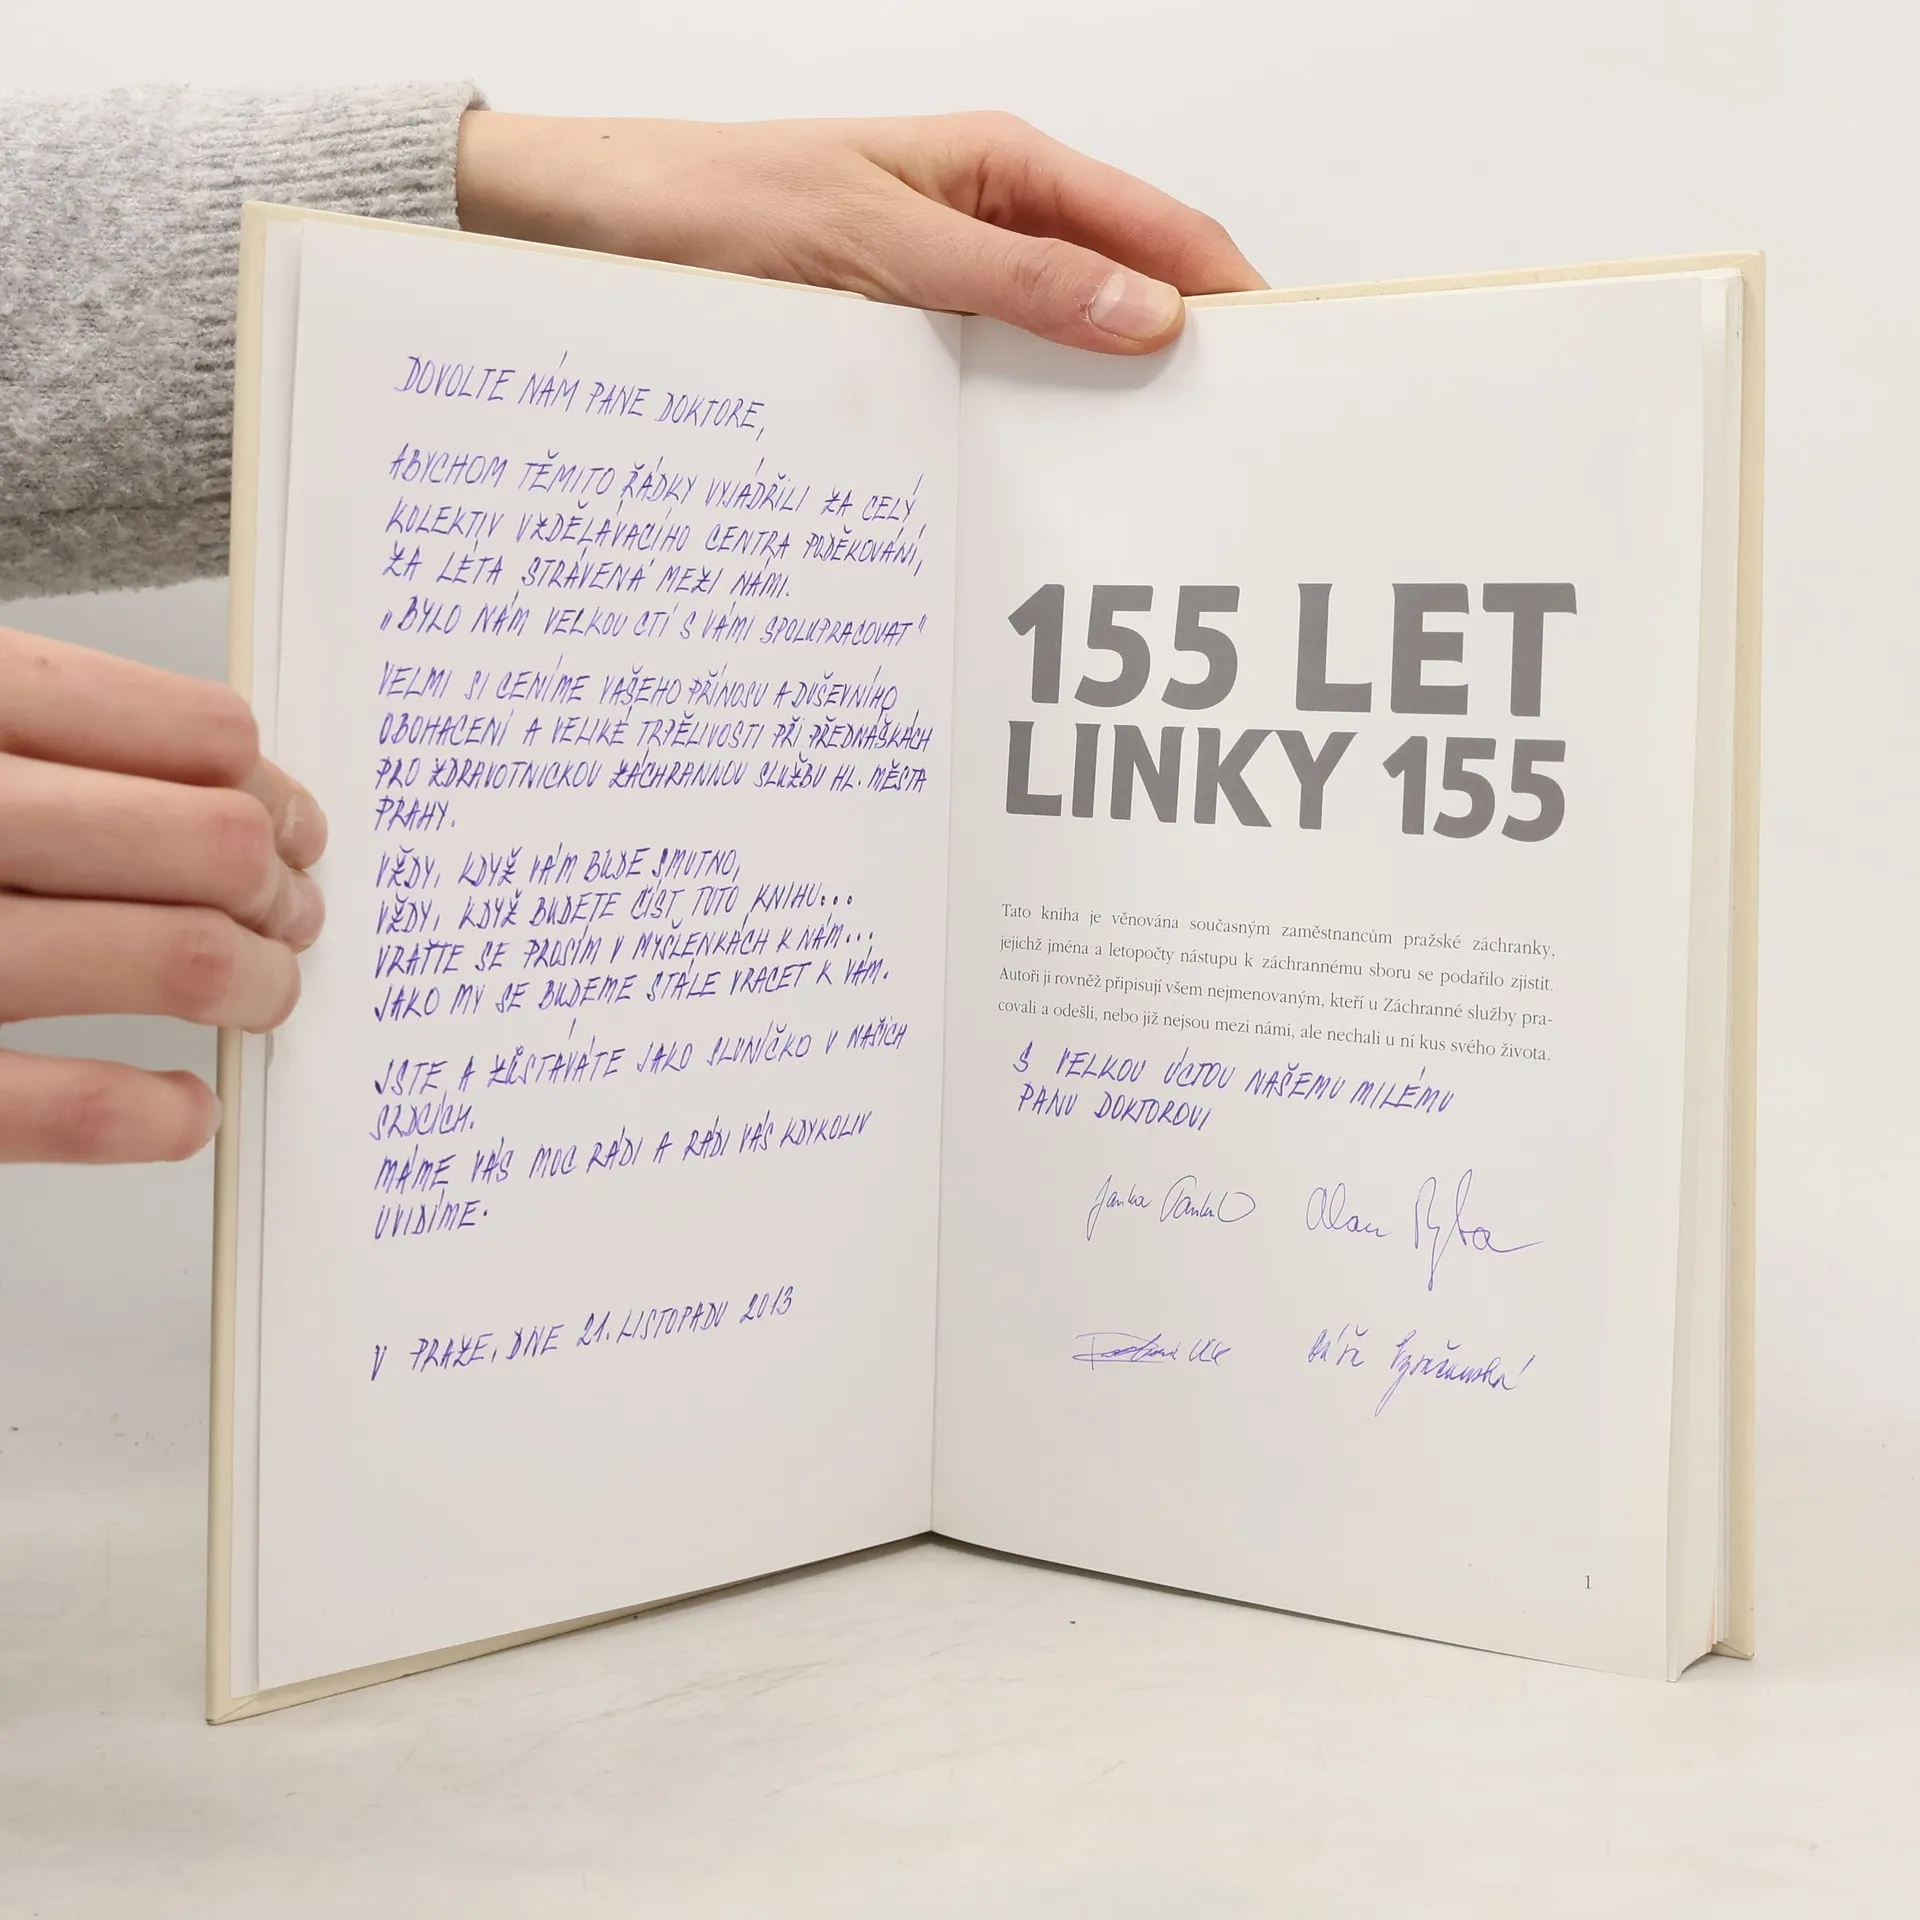 DOVOLTE NÁM PANE DOKTORE,
ABYCHOM TĚMITO ŘÁDKY VYJÁDŘILI ZA CELÝ
KOLEKTIV VZDĚLÁVACÍHO CENTRA PODĚKOVÁNÍ,
ZA LÉTA STRÁVENÁ MEZI NÁMI.
„BYLO NÁM VELKOU CTÍ S VÁMI SPOLUPRACOVAT"
VELMI SI CENÍME VAŠEHO PŘÍNOSU A DUŠEVNÍHO
OBOHACENÍ A VELIKÉ TRPĚLIVOSTI PŘI PŘEDNÁŠKÁCH
PRO ZDRAVOTNICKOU ZÁCHRANNOU SLUŽBU HL. MĚSTA
PRAHY.
VŽDY, KDYŽ VÁM BUDE SMUTNO,
VŽDY, KDYŽ BUDETE ČÍST TUTO KNIHU...
VRAŤTE SE PROSÍM V MYŠLENKÁCH K NÁM...
JAKO MY SE BUDEME STÁLE VRACET K VÁM.
JSTE A ZŮSTÁVÁTE JAKO SLUNÍČKO V NAŠICH
SRDCÍCH.
MÁME VÁS MOC RÁDI A RÁDI VÁS KDYKOLIV
UVIDÍME.
V PRAZE, DNE 21. LISTOPADU 2013
155 LET
LINKY 155
Tato kniha je věnována současným zaměstnancům pražské záchranky,
jejichž jména a letopočty nástupu k záchrannému sboru se podařilo zjistit.
Autoři ji rovněž připisují všem nejmenovaným, kteří u Záchranné služby pra-
covali a odešli, nebo již nejsou mezi námi, ale nechali u ní kus svého života.
S VELKOU ÚCTOU NAŠEMU MILÉMU
PANU DOKTOROVI
Janka
Alan Ryba
1